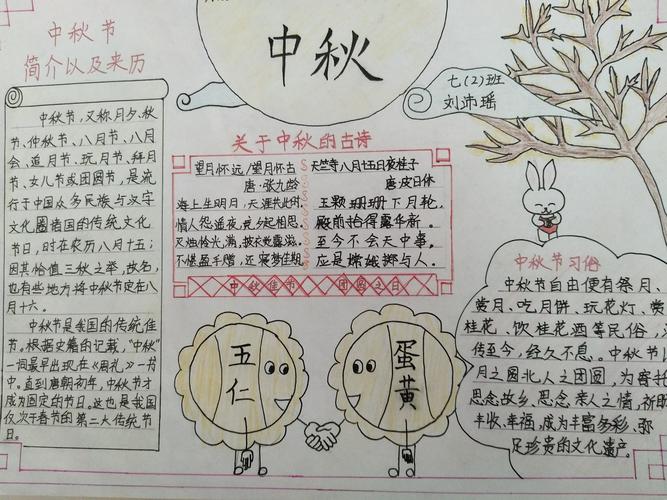 中秋
七(2)班
刘沛瑶
中秋节
简介以及来历
中秋节，又称月夕、秋
节、仲秋节、八月节、八月
会、追月节、玩月节、拜月
节、女儿节或团圆节，是流
行于中国众多民族与汉字
文化圈诸国的传统文化
节日，时在农历八月十五；
因其恰值三秋之半，故名，
也有些地方将中秋节定在八
月十六。
中秋节是我国的传统佳
节。根据史籍的记载，“中秋”
一词最早出现在《周礼》一书
中。直到唐朝初年，中秋节才
成为固定的节日。这也是我国
仅次于春节的第二大传统节
日。
关于中秋的古诗
望月怀远/望月怀古
唐·张九龄
海上生明月，天涯共此时。
情人怨遥夜，竟夕起相思。
灭烛怜光满，披衣觉露滋。
不堪盈手赠，还寝梦佳期。
天竺寺八月十五日夜桂子
唐·皮日休
玉颗珊珊下月轮，
殿前拾得露华新。
至今不会天中事，
应是嫦娥掷与人。
中秋佳节 团圆之日
五仁
蛋黄
中秋节习俗
中秋节自由便有祭月、
赏月、吃月饼、玩花灯、赏
桂花、饮桂花酒等民俗，
传至今，经久不息。中秋节
月之圆兆人之团圆，为寄托
思念故乡，思念亲人之情，祈盼
丰收、幸福，成为丰富多彩、弥
足珍贵的文化遗产。